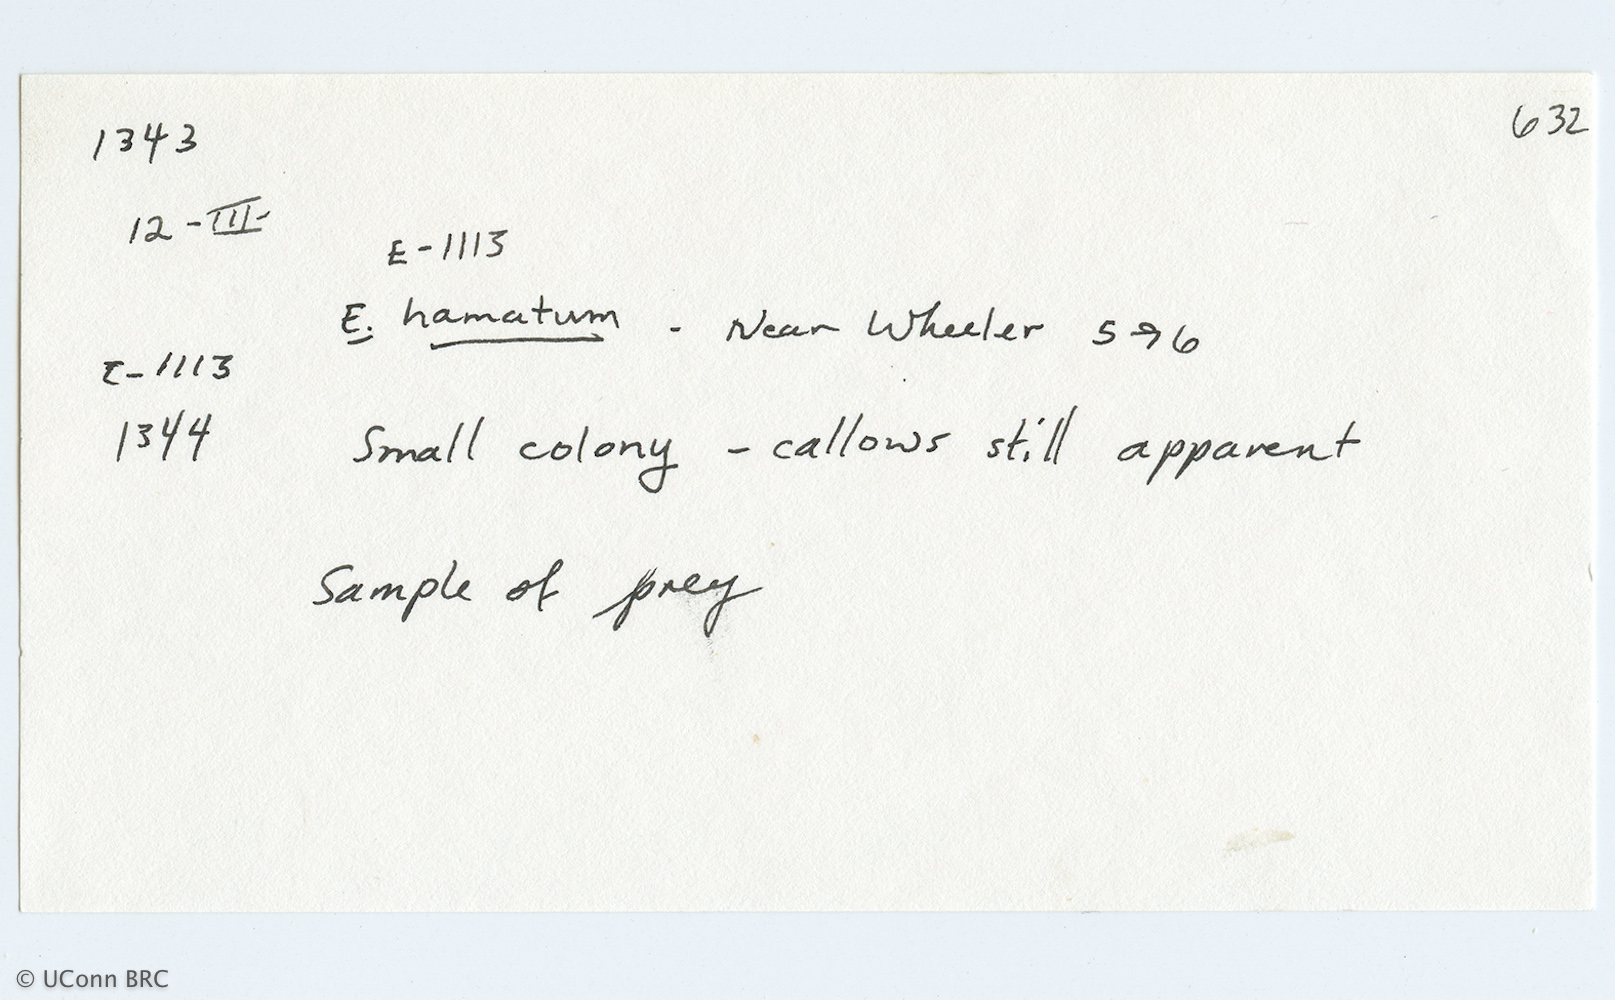 1343
632
12-III-
E-1113
E. hamatum - Near Wheeler 5→6
E-1113
1344 Small colony - callows still apparent
Sample of prey
© UConn BRC